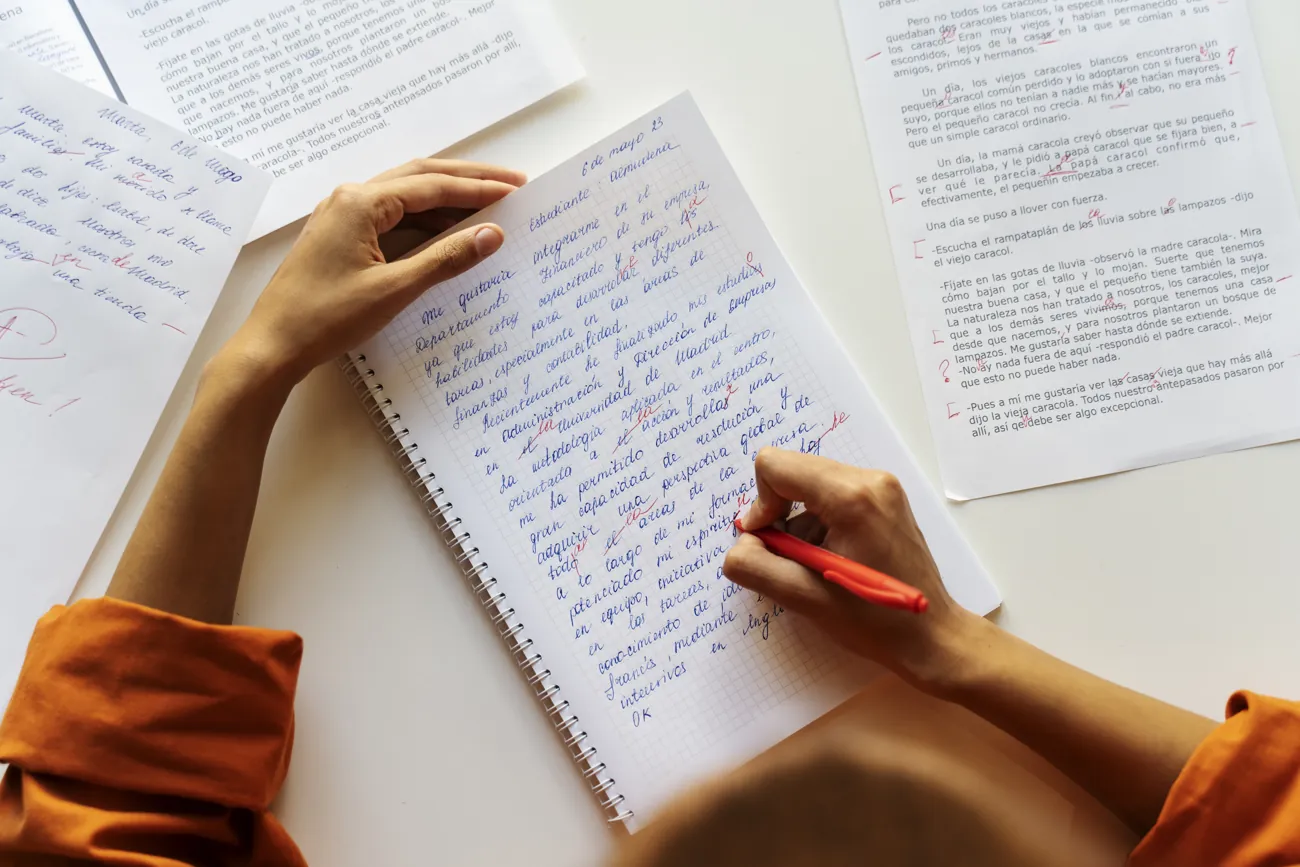 ena
Un día s
-Escucha el rampata
viejo caracol.
-Fíjate en las gotas de lluvia
cómo bajan por el tallo y lo moj
nuestra buena casa, y que el pequeño
La naturaleza nos han tratado a nosotros,
que a los demás seres vivimos, porque tenemos
que nacemos, y para nosotros plantaron un
lampazos. Me gustaría saber hasta dónde se extiende.
No hay nada fuera de aquí -respondió el padre caracol-. Mejor
esto no puede haber nada.
a mi me gustaría ver la casa vieja que hay más allá -dijo
caracola-. Todos nuestros antepasados pasaron por allí,
be ser algo excepcional.
Marta, 6 de mayo
Marta, estoy casada y
familia. Mi marido se llama
dos hijos: Isabel, de doce
de dice. Nosotros
cerca de Madrid.
en
una tienda
A-
¡Bien!
6 de mayo 23
Estudiante: Almudena
Me gustaría integrarme en el
Departamento financiero de su empresa,
ya que estoy capacitado y tengo los
a
habilidades para desarrollar diferentes
tareas, especialmente en las áreas de
finanzas y contabilidad.
Recientemente he finalizado mis estudios
o
en administración y Dirección de Empresas
en el Universidad de Madrid.
la
La metodología aplicada en el centro,
orientado a el acción y resultados,
la
me ha permitido desarrollar una
gran capacidad de resolución y
adquirir una perspectiva global de
todo el áreas de la empresa.
la
a lo largo de mi formac he
potenciado mi espíritu
en equipo, iniciativa
en las tareas, a
conocimiento de id
francés, mediante
intensivos en Ingl
OK
para co
Pero no todos los caracoles
quedaban dos caracoles blancos, la especie más
los caracol. Eran muy viejos y habían permanecido
escondidos, lejos de la casa en la que se comían a sus
amigos, primos y hermanos.
Un día, los viejos caracoles blancos encontraron un
pequeña caracol común perdido y lo adoptaron con si fuera ijo
suyo, porque ellos no tenían a nadie más y se hacían mayores.
Pero el pequeño caracol no crecía. Al fin al cabo, no era más
que un simple caracol ordinario.
Un día, la mamá caracol creyó observar que su pequeño
se desarrollaba, y le pidió a papá caracol que se fijara bien, a
ver qué le parecía. Lo papá caracol confirmó que,
efectivamente, el pequeñín empezaba a crecer.
Una día se puso a llover con fuerza.
-Escucha el rampataplán de los lluvia sobre las lampazos -dijo
el viejo caracol.
-Fíjate en las gotas de lluvia -observó la madre caracola-. Mira
cómo bajan por el tallo y lo mojan. Suerte que tenemos
nuestra buena casa, y que el pequeño tiene también la suya.
La naturaleza nos han tratado a nosotros, los caracoles, mejor
que a los demás seres vivimos, porque tenemos una casa
desde que nacemos, y para nosotros plantaron un bosque de
lampazos. Me gustaría saber hasta dónde se extiende.
?
-No ay nada fuera de aquí -respondió el padre caracol-. Mejor
que esto no puede haber nada.
-Pues a mi me gustaría ver las casas vieja que hay más allá
dijo la vieja caracola. Todos nuestro antepasados pasaron por
allí, así qe debe ser algo excepcional.